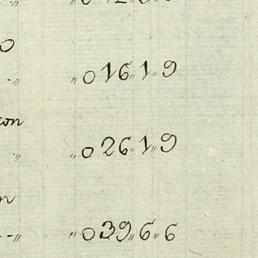 0
" 0 16 " 1 " 9
" 0 26 " 1 " 9
" 0 39 " 6 " 6